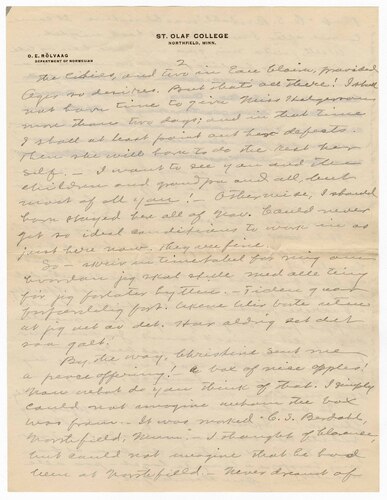 ST. OLAF COLLEGE
NORTHFIELD, MINN.
O. E. RÖLVAAG
DEPARTMENT OF NORWEGIAN
2
the Cities, and two in Eau Claire, provided
so desires. But that's all there! I shall
not have time to give Miss
more than two days; and in that time
I shall at least point out her defects.
Then she will have to do the rest her-
self. — I want to see you and the
children and grandpa and all, but
most of all you! — Otherwise, I should
have stayed here all of Xmas. Could never
get so ideal conditions to work in as
just here now. They are fine.
So — skriv en timetabel for mig om
hvordan jeg skal stille med alle ting
før jeg forlater byen. — Tiden gaar
fort.
at jeg vet av det. Har aldrig set det
saa galt!
By the way, Christine sent me
a peace offering! A box of nice apples!
Now what do you think of that. I simply
could not imagine whom the box
was from. It was marked C. J. Berdahl,
Northfield, Minn. — I thought of Clarence,
but could not imagine that he had
been at Northfield. — Never dreamt of